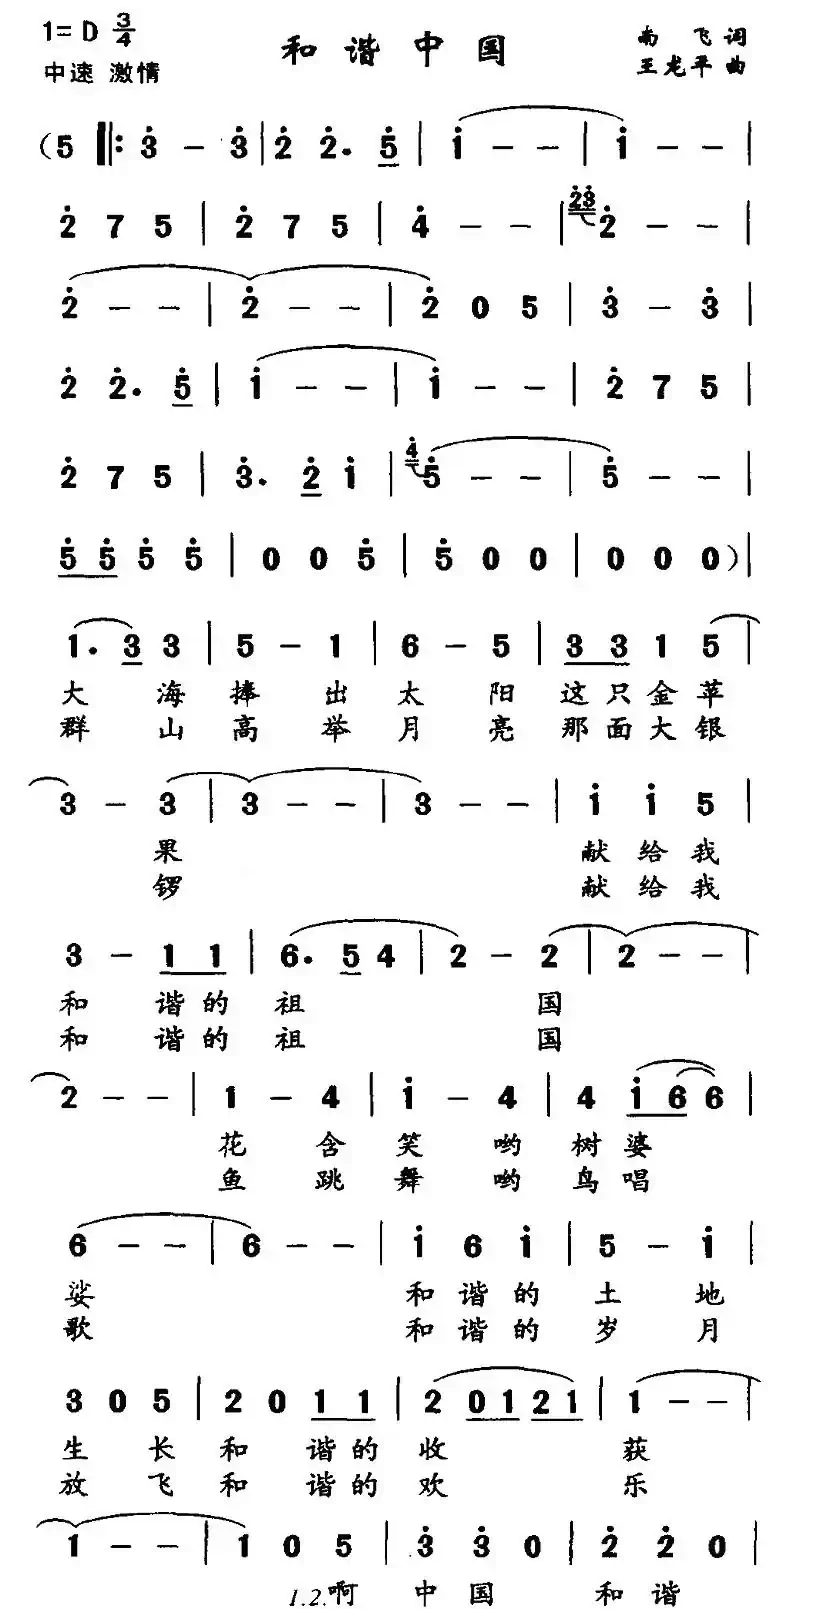 1=D 3/4
和谐中国
南飞词
中速 激情
王龙平曲
(5 ‖: 3̇ - 3̇ | 2̇ 2̇. 5̇ | 1̇ - - | 1̇ - - |
2̇ 7 5 | 2̇ 7 5 | 4̇ - - | 2̇3̇ 2̇ - - |
2̇ - - | 2̇ - - | 2̇ 0 5 | 3̇ - 3̇ |
2̇ 2̇. 5̇ | 1̇ - - | 1̇ - - | 2̇ 7 5 |
2̇ 7 5 | 3̇. 2̇ 1̇ | 4̇ 5̇ - - | 5̇ - - |
5̇ 5̇ 5̇ 5̇ | 0 0 5̇ | 5̇ 0 0 | 0 0 0 ) |
1. 3 3 | 5 - 1 | 6 - 5 | 3 3 1 5 |
大海捧出太阳这只金苹
群山高举月亮那面大银
3 - 3 | 3 - - | 3 - - | 1̇ 1̇ 5 |
果 献给我
锣 献给我
3 - 1 1 | 6. 5 4 | 2 - 2 | 2 - - |
和谐的祖国
和谐的祖国
2 - - | 1 - 4 | 1̇ - 4 | 4 1̇ 6 6 |
花含笑哟树婆
鱼跳舞哟鸟唱
6 - - | 6 - - | 1̇ 6 1̇ | 5 - 1̇ |
娑 和谐的土地
歌 和谐的岁月
3 0 5 | 2 0 1 1 | 2 0 1 2 1 | 1 - - |
生长和谐的收获
放飞和谐的欢乐
1 - - | 1 0 5 | 3̇ 3̇ 0 | 2̇ 2̇ 0 |
1.2.啊 中国 和谐